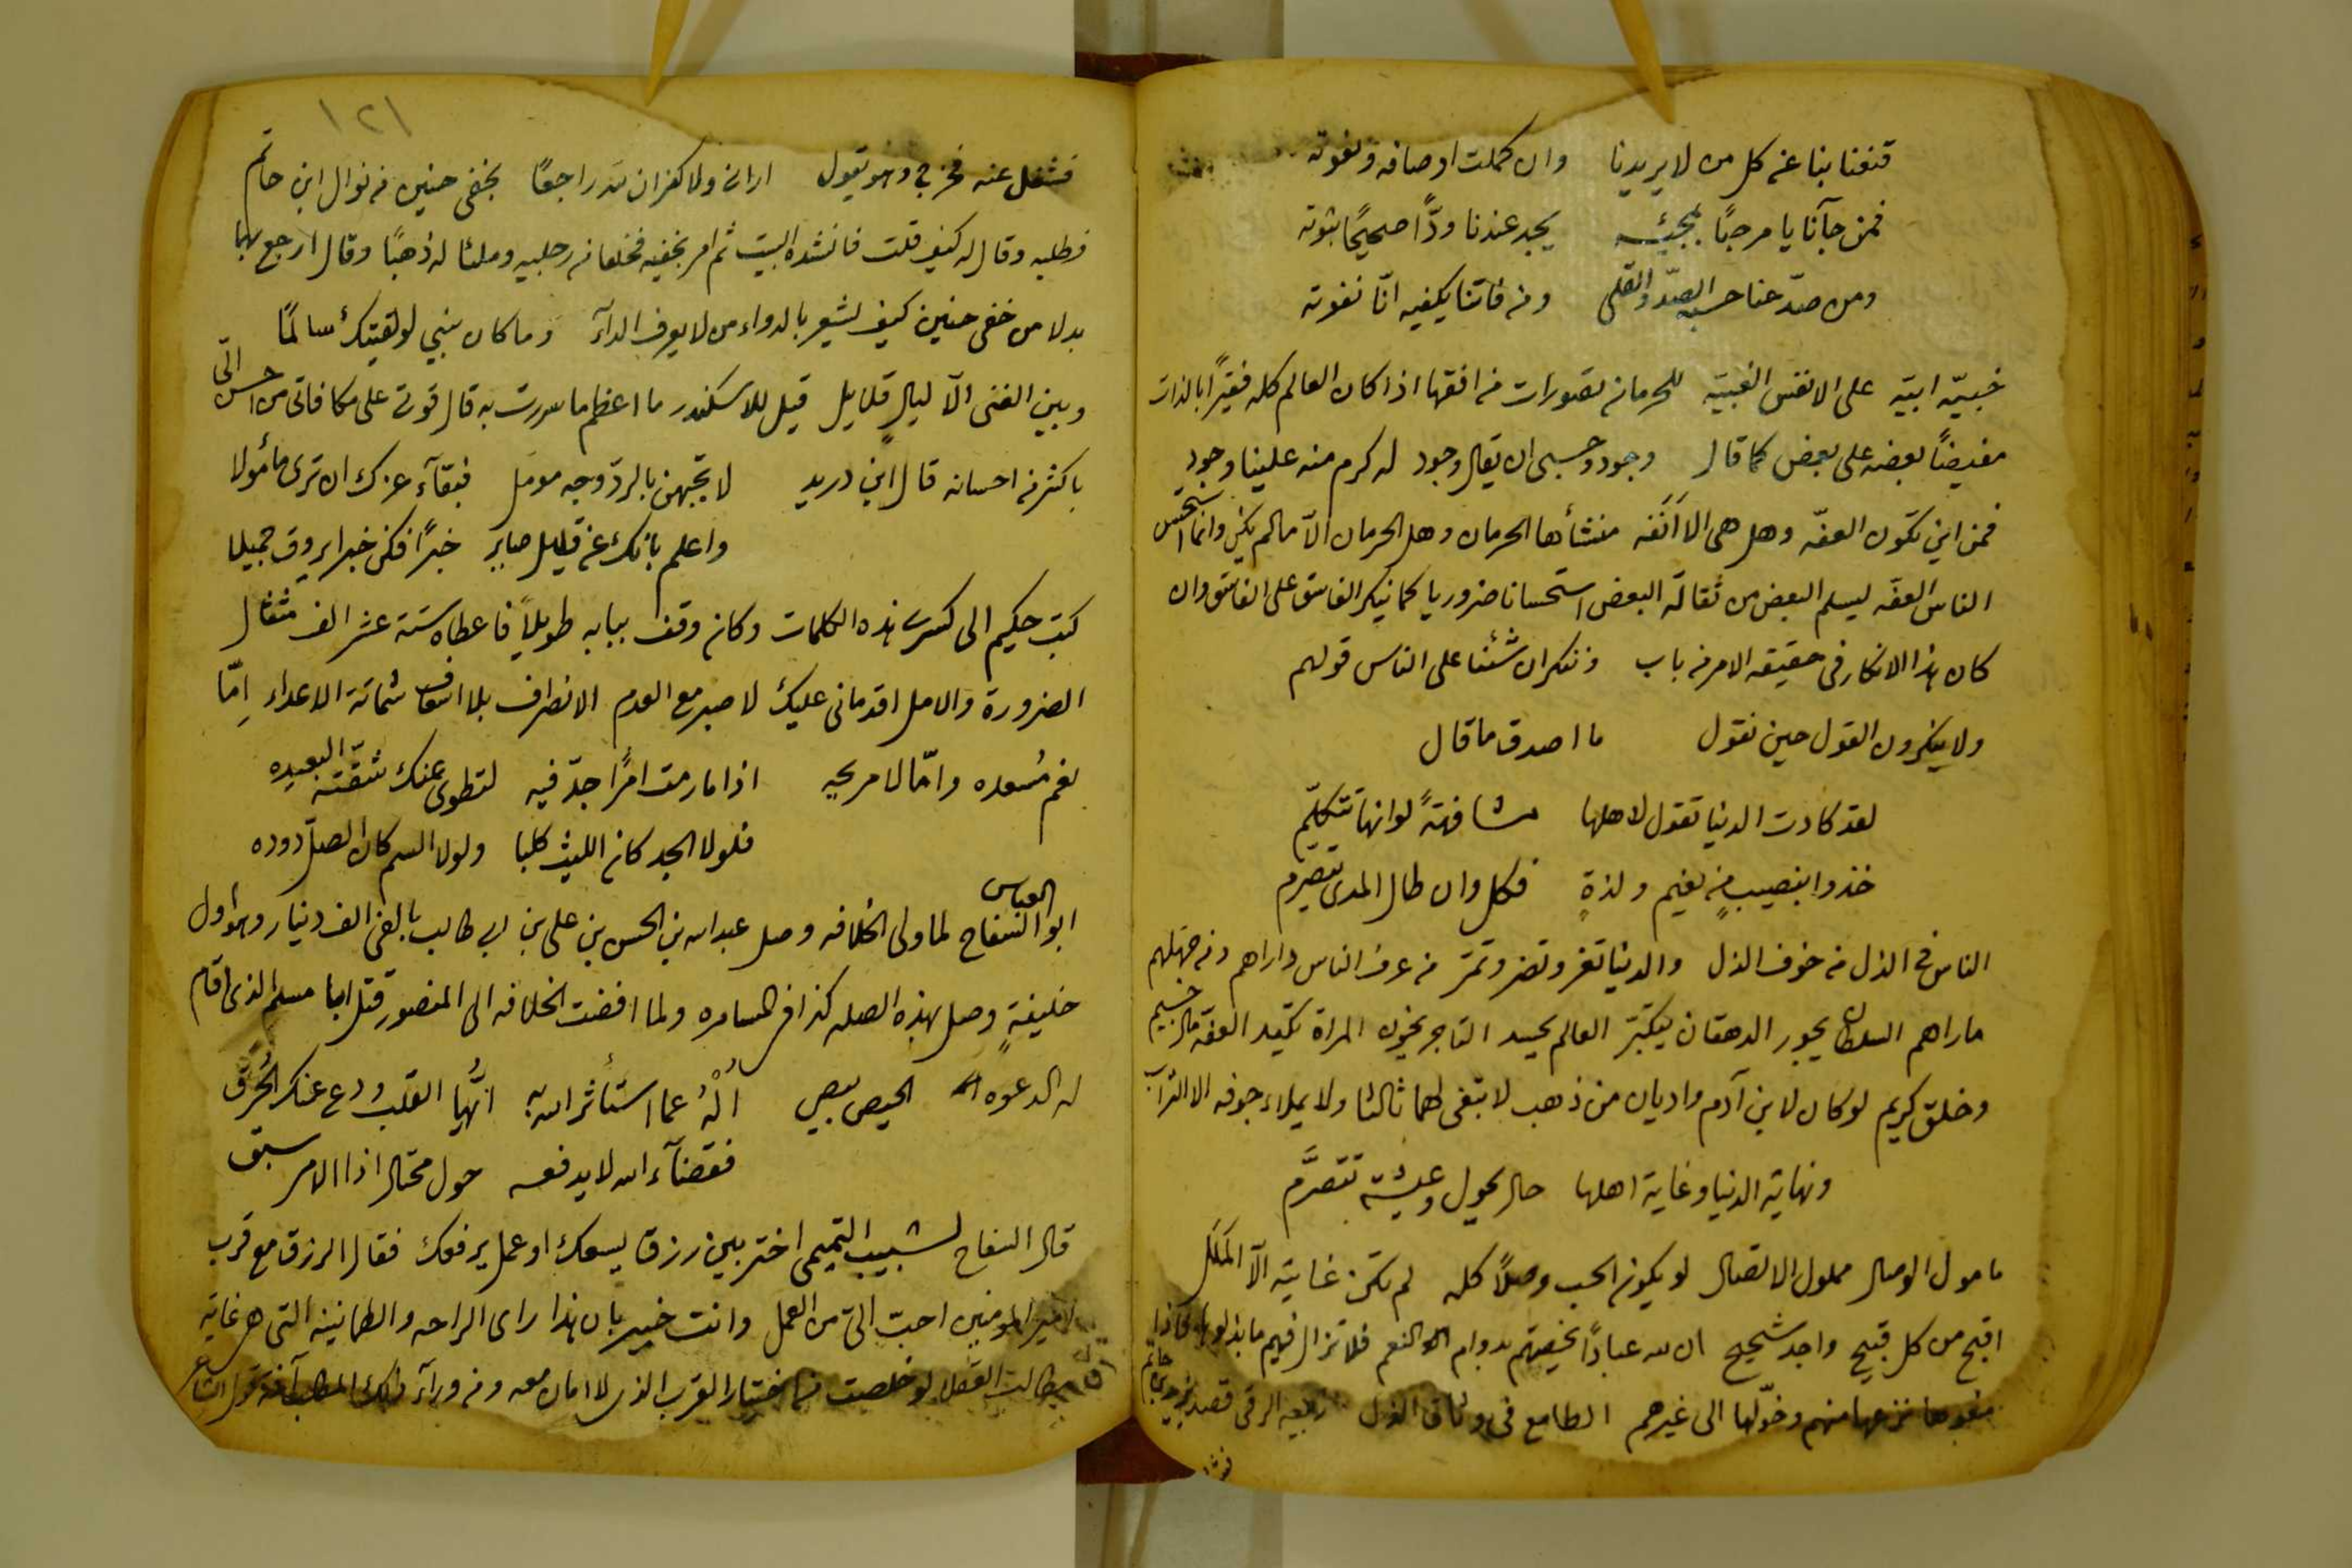 قنعنا بنا عن كل من لا يريدنا وان كملت اوصافه ونعوته
فمن جآنا يا مرحبًا بمجيئه يجد عندنا ودًّا صحيحًا ثبوته
ومن صدّ عنا حسبه الصدّ والقلى ومن فاتنا يكفيه انّا نفوته
ابيّه على الانفس الغبيّه للحرمان تصورات من افقها اذا كان العالم كله فقيرًا بالذات
مفيضًا بعضه على بعض كما قال وجود وحسبى ان يقال وجود له كرم منه علينا وجود
فمن اين تكون العفّه وهل هى الا اَنَفَه منشأها الحرمان وهل الحرمان الّا مالم يكن وانما استحسن
الناس العفّه ليسلم البعض من ثقالة البعض استحسانا ضروريا كما ينكر الفاسق على الفاسق وان
كان هذا الانكار فى حقيقه الامر من باب وننكر ان شئنا على الناس قولهم
ولا ينكرون القول حين نقول ما اصدق ما قال
لقد كادت الدنيا تقول لاهلها مشافهةً لو انها تتكلّم
خذوا بنصيبٍ من نعيم ولذةٍ فكل وان طال المدى يتصرّم
الناس فى الذل من خوف الذل والدنيا تغر وتضر وتمرّ من عرف الناس داراهم ومن جهلهم
ماراهم السلطان يجور الدهقان يتكبّر العالم يحسد التاجر يخون المراة تكيد العفة مال جسيم
وخلق كريم لو كان لابن آدم واديان من ذهب لابتغى لهما ثالثا ولا يملاء جوفه الا التراب
ونهاية الدنيا وغاية اهلها حال يحول وعيشة تتصرّم
مامول الوصال مملول الاتصال لو يكون الحب وصلًا كله لم تكن غايته الّا المَلَل
اقبح من كل قبيح واجد شحيح ان لله عبادًا يخصهم بدوام النعم فلا تزال فيهم ما بذلوها فاذا
منعوها نزعها منهم وحوّلها الى غيرهم الطامع فى وثاق الذل ربيعه الرقى قصد يزيد بن حاتم
فشغل
١٢١
فشغل عنه فخرج وهو يقول ارانى ولا كفران لله راجعًا بخفى حنين من نوال ابن حاتم
فطلبه وقال له كيف قلت فانشده البيت ثم امر بخفيه فخلعا من رجليه وملئا له ذهبًا وقال ارجع بهما
بدلا من خفى حنين كيف يشير بالدواء من لا يعرف الدآء وما كان بينى لو لقيتك سالمًا
وبين الغنى الّا ليالٍ قلايل قيل للاسكندر ما اعظم ما سررت به قال قوتى على مكافاتى من احسن الىّ
باكثر من احسانه قال ابن دريد لا تجبهن بالردّ وجه مومل فبقآء عزك ان ترى مأمولا
واعلم بانك عن قليل صاير خبرًا فكن خبرا يروق جميلا
كتب حكيم الى كسرى هذه الكلمات وكان وقف ببابه طويلًا فاعطاه ستة عشر الف مثقال
الضرورة والامل اقدمانى عليك لا صبر مع العدم الانصراف بلا اسعاف شماتة الاعداء اِمّا
نعم مسعده وامّا لا مريحه اذا ما رمت امرًا جدّ فيه لتطوى عنك شقّته البعيده
فلولا الجد كان الليث كلبا ولولا السم كان الصلّ دوده
ابو العباس السفاح لما ولى الخلافه وصل عبد الله بن الحسن بن على بن ابى طالب بالفى الف دينار وهو اول
خليفةٍ وصل بهذه الصله كذا فى المسامره ولما افضت الخلافه الى المنصور قتل ابا مسلم الذى اقام
له الدعوه الحيص بيص اُلْهُ عما استأثر الله به ايّها القلبُ ودع عنك الحُرَق
فقضآء الله لا يدفعه حول محتال اذا الامر سبق
قال السفاح لشبيب التميمى اختر بين رزق يسعك او عمل يرفعك فقال الرزق مع قرب
امير المومنين احبّ الىّ من العمل وانت خبير بان هذا راى الراحه والطمانينه التى هى غاية
مطالب العقلا لو خلصت فاختيار القرب الذى لا امان معه ومن ورآء ذلك المطلب